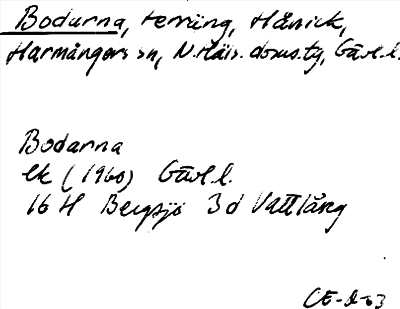 Bodarna, terräng, Hånick,
Harmångers sn, N. Häls. doms.ty, Gävl.l.
Bodarna
ek (1960) Gävl.l.
16 H Bergsjö 3 d Vattlång